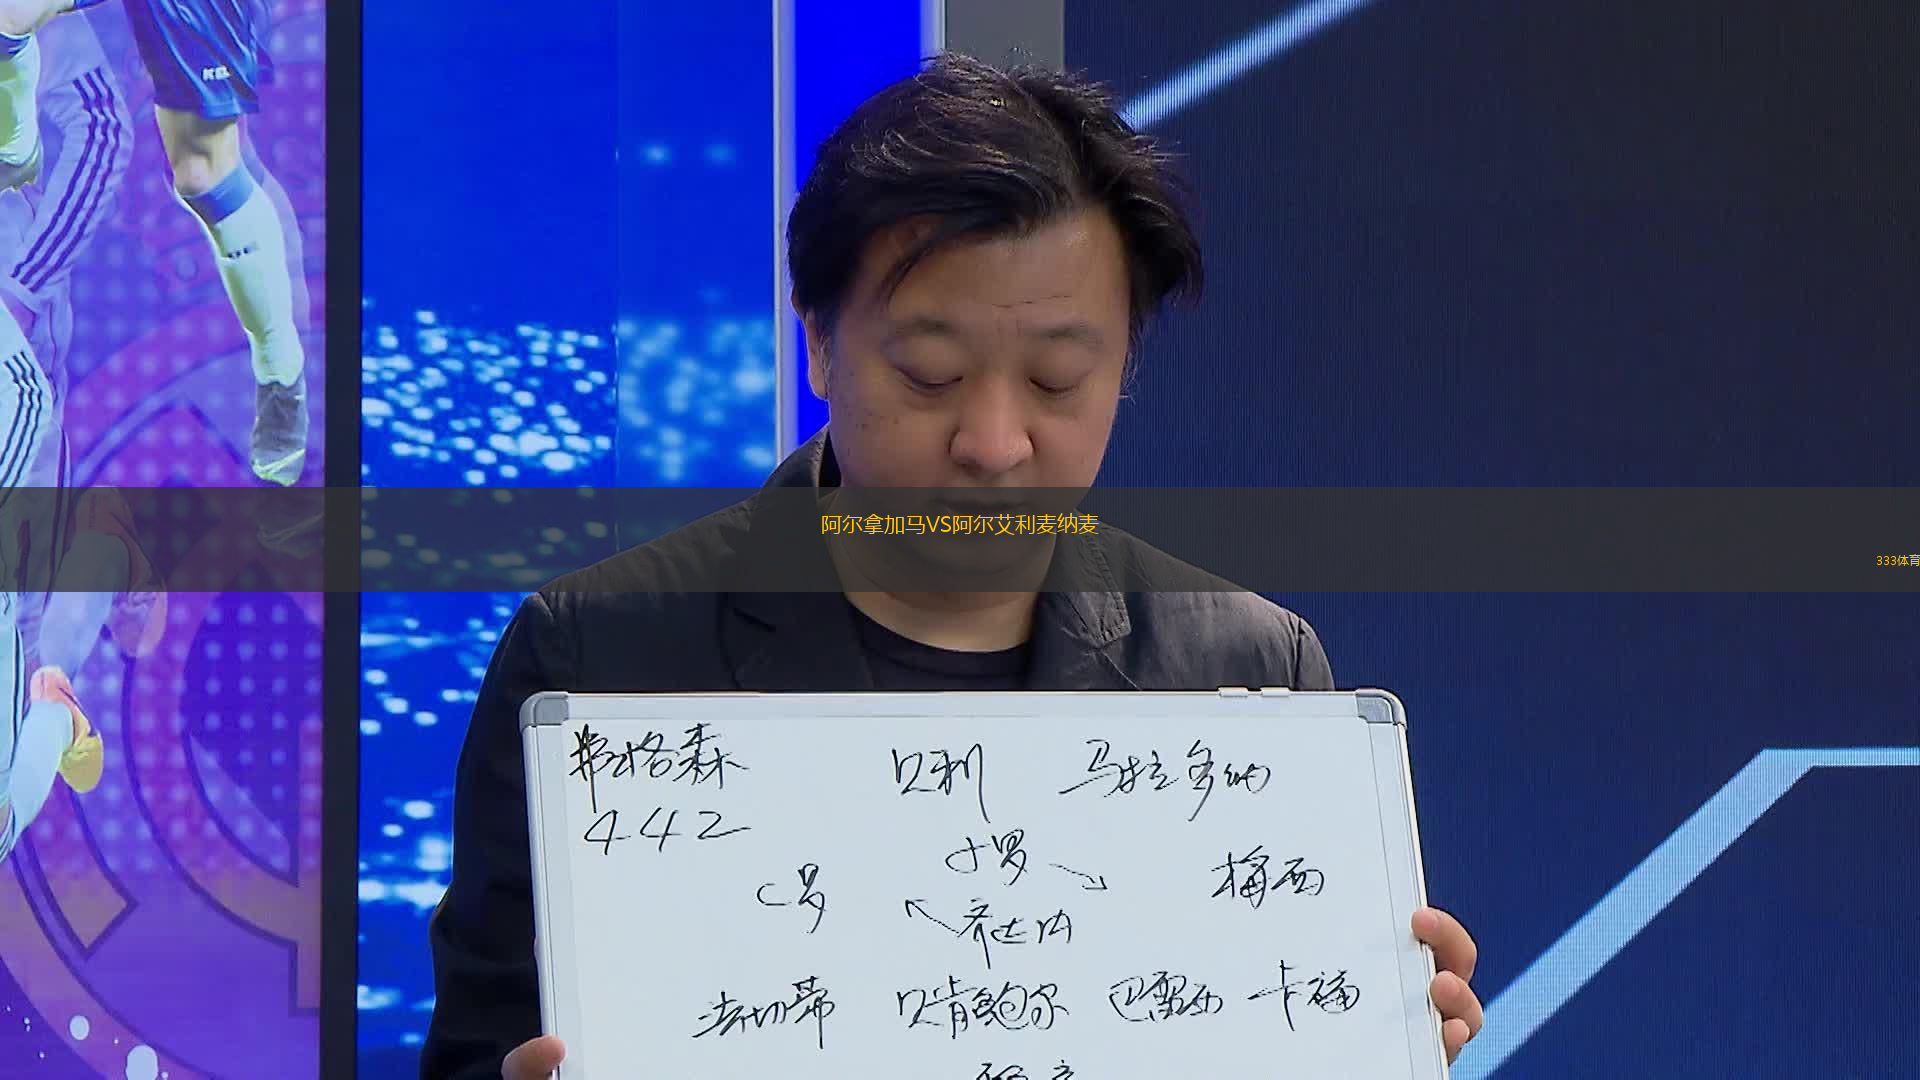 KEL
阿尔拿加马VS阿尔艾利麦纳麦
333体育
弗格森 贝利 马拉多纳
442
小罗
C罗 梅西
齐达内
法切蒂 贝肯鲍尔 巴雷西 卡福